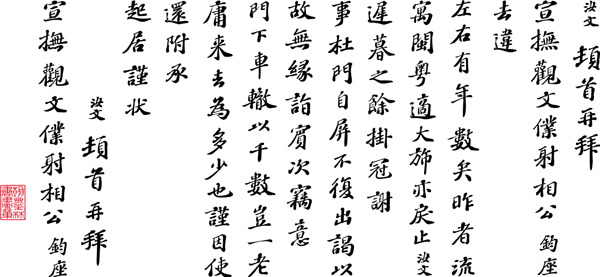 汝文 頓首再拜
宣撫觀文僕射相公 鈞座
去違
左右有年數矣昨者流
寓閩粵適大旆亦戾止汝文
遲暮之餘掛冠謝
事杜門自屏不復出謁以
故無緣詣賓次竊意
門下車轍以千數豈一老
庸來去為多少也謹因使
還附承
起居謹狀
汝文 頓首再拜
宣撫觀文僕射相公 鈞座